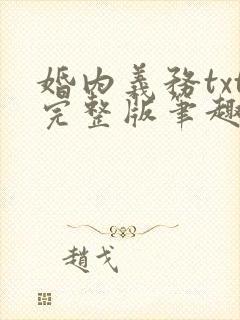 婚内義務txt
完整版筆趣
趙戈